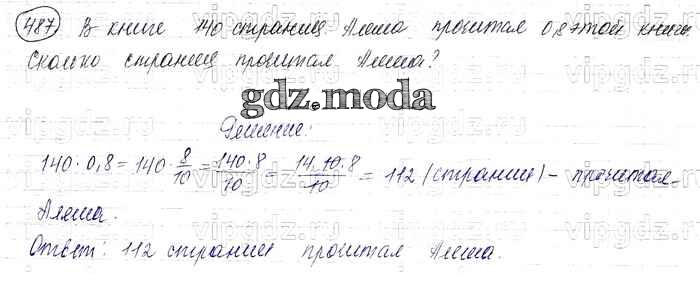 487 В книге 140 страниц Алеша прочитал 0,8 этой книги
Сколько страниц прочитал Алеша?
gdz.moda
Решение:
140·0,8=140·8/10=140·8/10=14·10·8/10=112 (страниц)- прочитал
Алеша.
Ответ: 112 страниц прочитал Алеша.